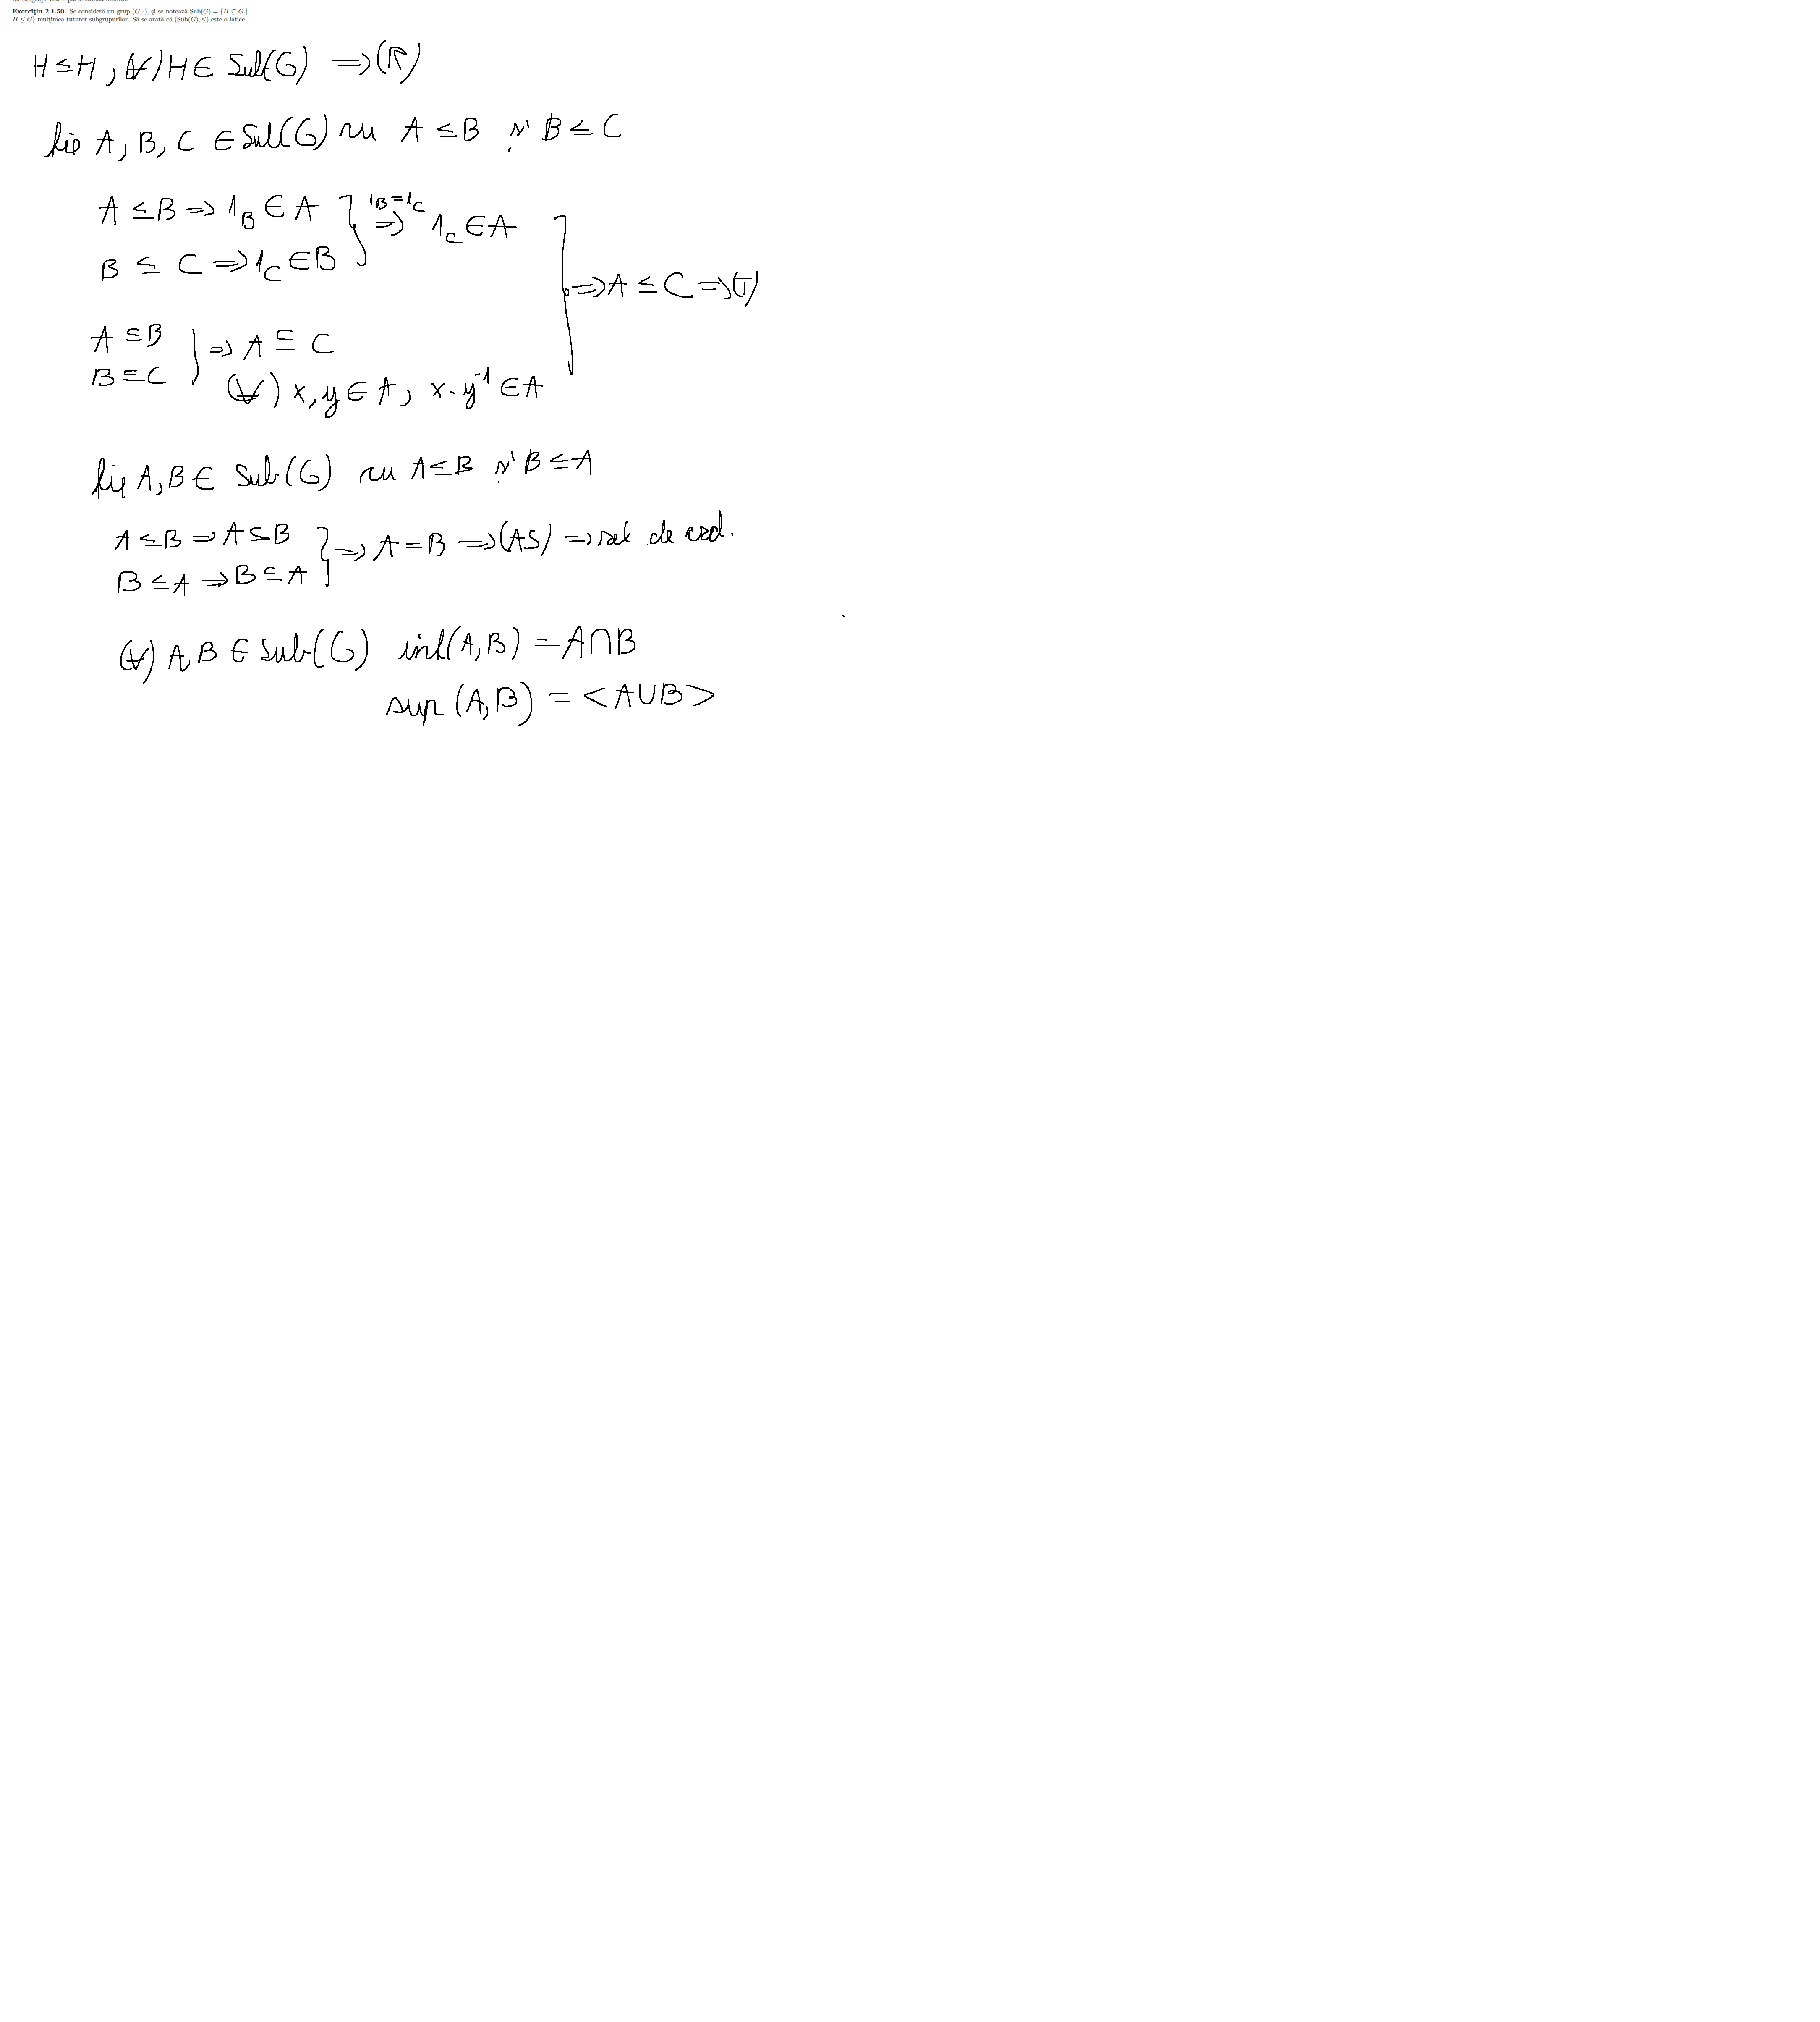 Exercițiu 2.1.50. Se consideră un grup (G, ·), și se notează Sub(G) = {H ⊆ G |
H ≤ G} mulțimea tuturor subgrupurilor. Să se arată că (Sub(G), ≤) este o latice.
H ≤ H, (∀) H ∈ Sub(G) ⇒ (R)
fie A, B, C ∈ Sub(G) cu A ≤ B și B ≤ C
A ≤ B ⇒ 1_B ∈ A } 1_B = 1_C ⇒ 1_C ∈ A
B ≤ C ⇒ 1_C ∈ B
} ⇒ A ≤ C ⇒ (T)
A ⊆ B } ⇒ A ⊆ C
B ⊆ C
(∀) x, y ∈ A, x · y⁻¹ ∈ A
fie A, B ∈ Sub(G) cu A ≤ B și B ≤ A
A ≤ B ⇒ A ⊆ B } ⇒ A = B ⇒ (AS) ⇒ rel de ord.
B ≤ A ⇒ B ⊆ A
(∀) A, B ∈ Sub(G) inf(A, B) = A ∩ B
sup (A, B) = < A ∪ B >